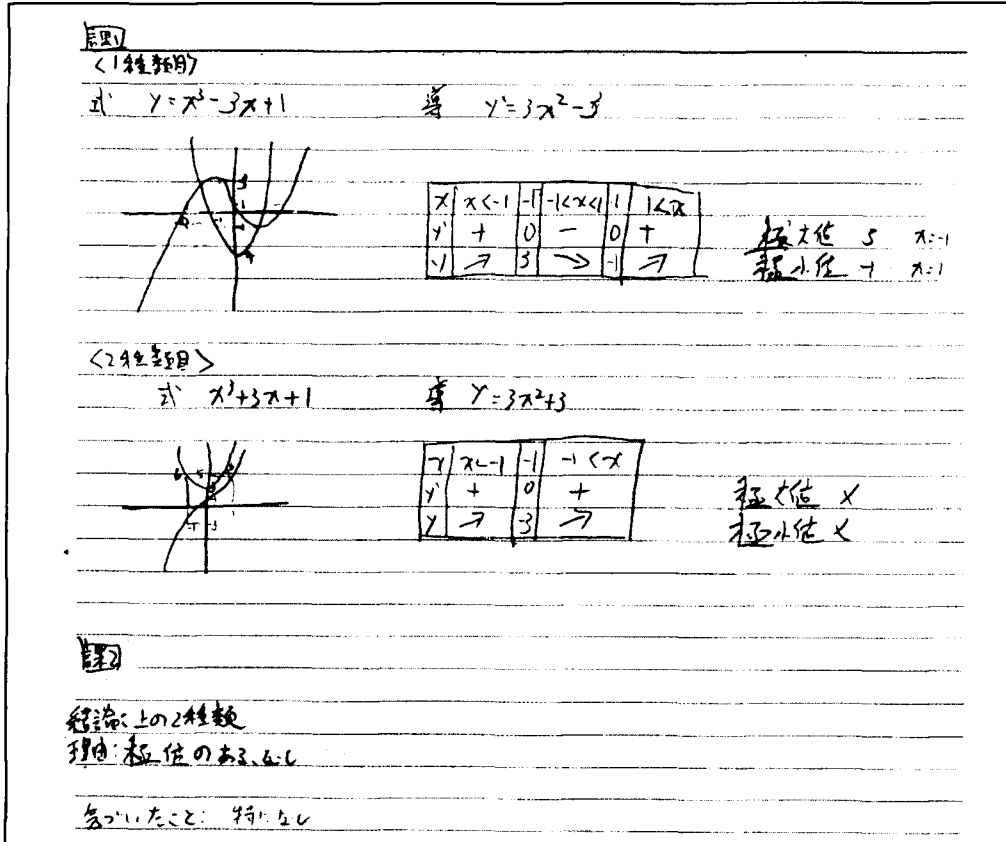 課1
<1種類目>
式 y=x³-3x+1 導 y'=3x²-3
x x<-1 -1 -1<x<1 1 1<x
y' + 0 - 0 +
y ↗ 3 ↘ -1 ↗
極大値 3 x=-1
極小値 -1 x=1
<2種類目>
式 x³+3x+1 導 y'=3x²+3
x x<-1 -1 -1<x
y' + 0 +
y ↗ -3 ↗
極大値 ×
極小値 ×
課2
結論:上の2種類
理由:極値のある、なし
気づいたこと: 特になし